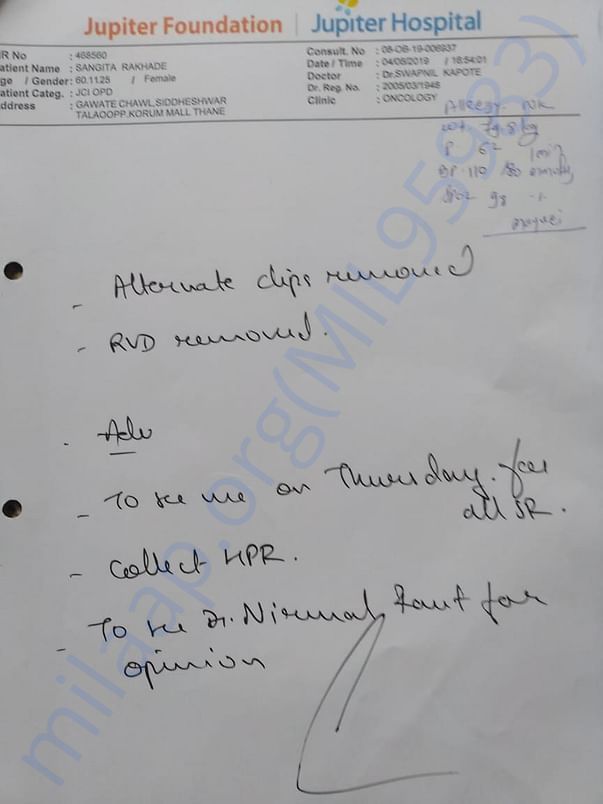 Jupiter Foundation | Jupiter Hospital
IR No : 468560
Consult. No : 08-OB-19-006937
atient Name : SANGITA RAKHADE
Date / Time : 04/06/2019 / 16:54:01
ge / Gender : 60.1125 / Female
Doctor : Dr.SWAPNIL KAPOTE
atient Categ. : JCI OPD
Dr. Reg. No. : 2005/03/1946
ddress : GAWATE CHAWL,SIDDHESHWAR
Clinic : ONCOLOGY
TALAOOPP.KORUM MALL THANE
Allergy. NK
wt. 79.8 kg
P 62 /min
BP. 110 /80 mmHg
SPO2 98 %
- Alternate clips removed
- RVD removed.
. Adv
- To see me on Thursday. for
all SR.
- Collect HPR.
- To see Dr. Nirmal Raut for
opinion
milaap.org(MIL95933)